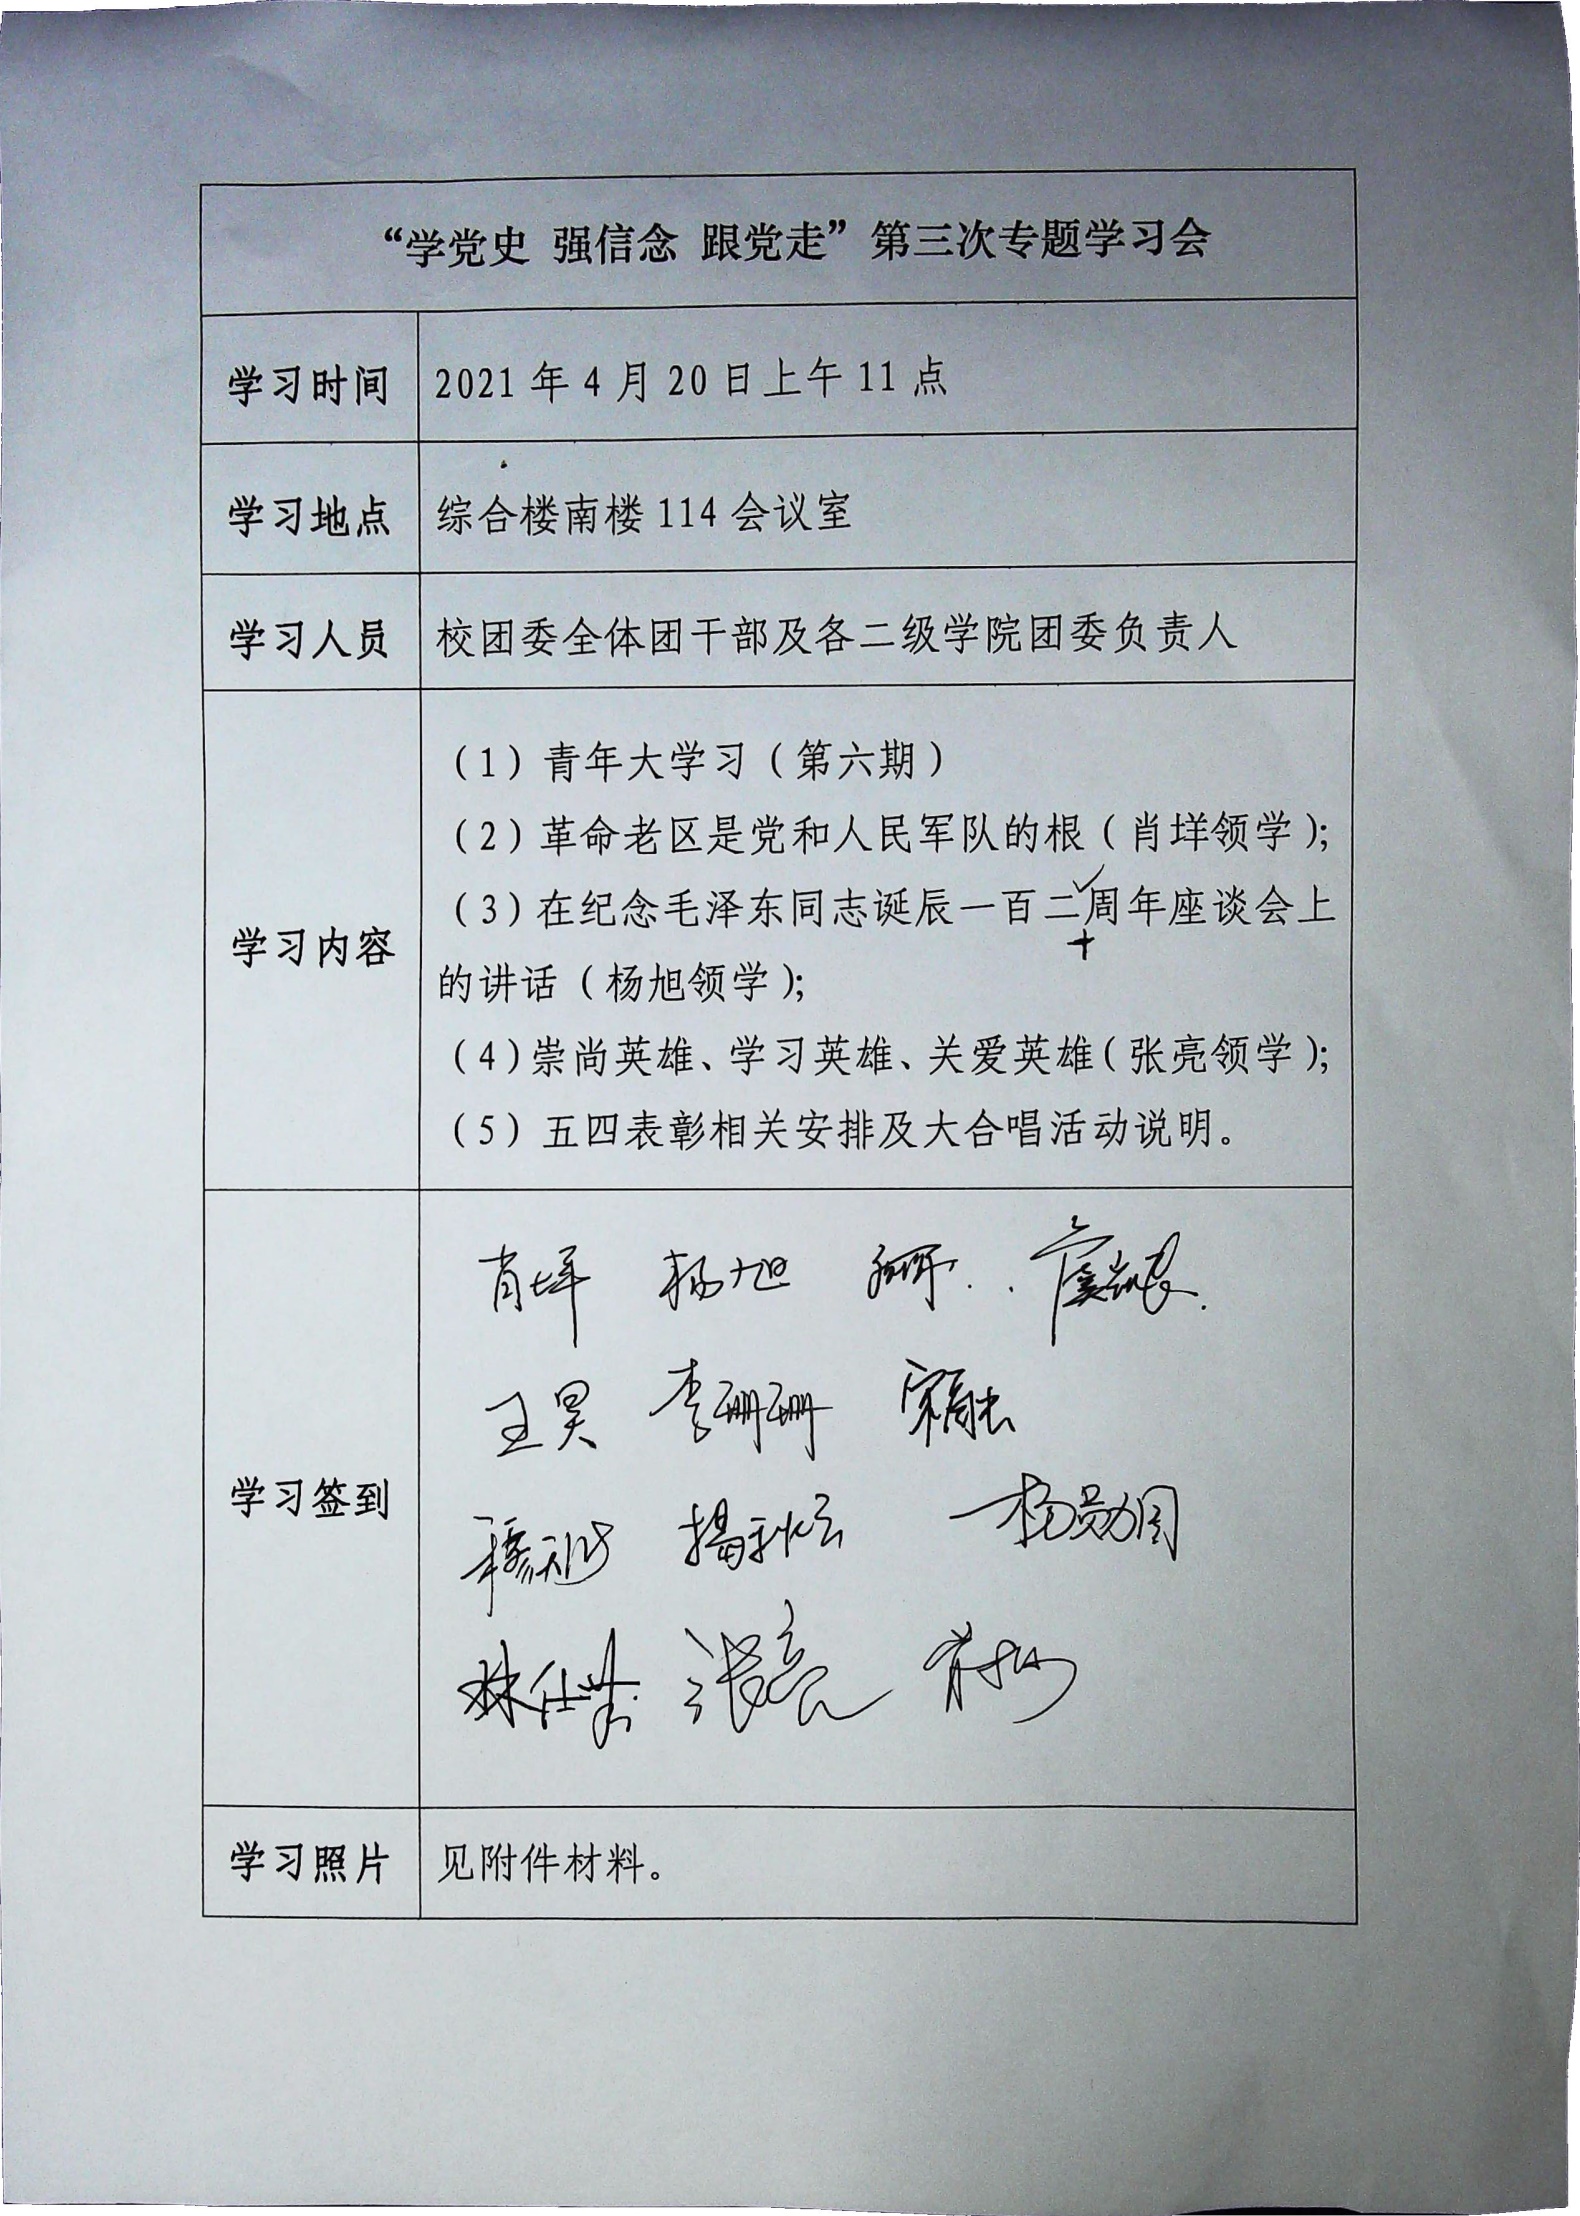 “学党史 强信念 跟党走”第三次专题学习会
学习时间 2021 年 4 月 20 日上午 11 点
学习地点 综合楼南楼 114 会议室
学习人员 校团委全体团干部及各二级学院团委负责人
学习内容
（1）青年大学习（第六期）
（2）革命老区是党和人民军队的根（肖垟领学）；
（3）在纪念毛泽东同志诞辰一百二周年座谈会上
十
的讲话（杨旭领学）；
（4）崇尚英雄、学习英雄、关爱英雄（张亮领学）；
（5）五四表彰相关安排及大合唱活动说明。
学习签到
肖垟 杨旭
王昊 李珊珊
杨勋国
张亮
学习照片 见附件材料。